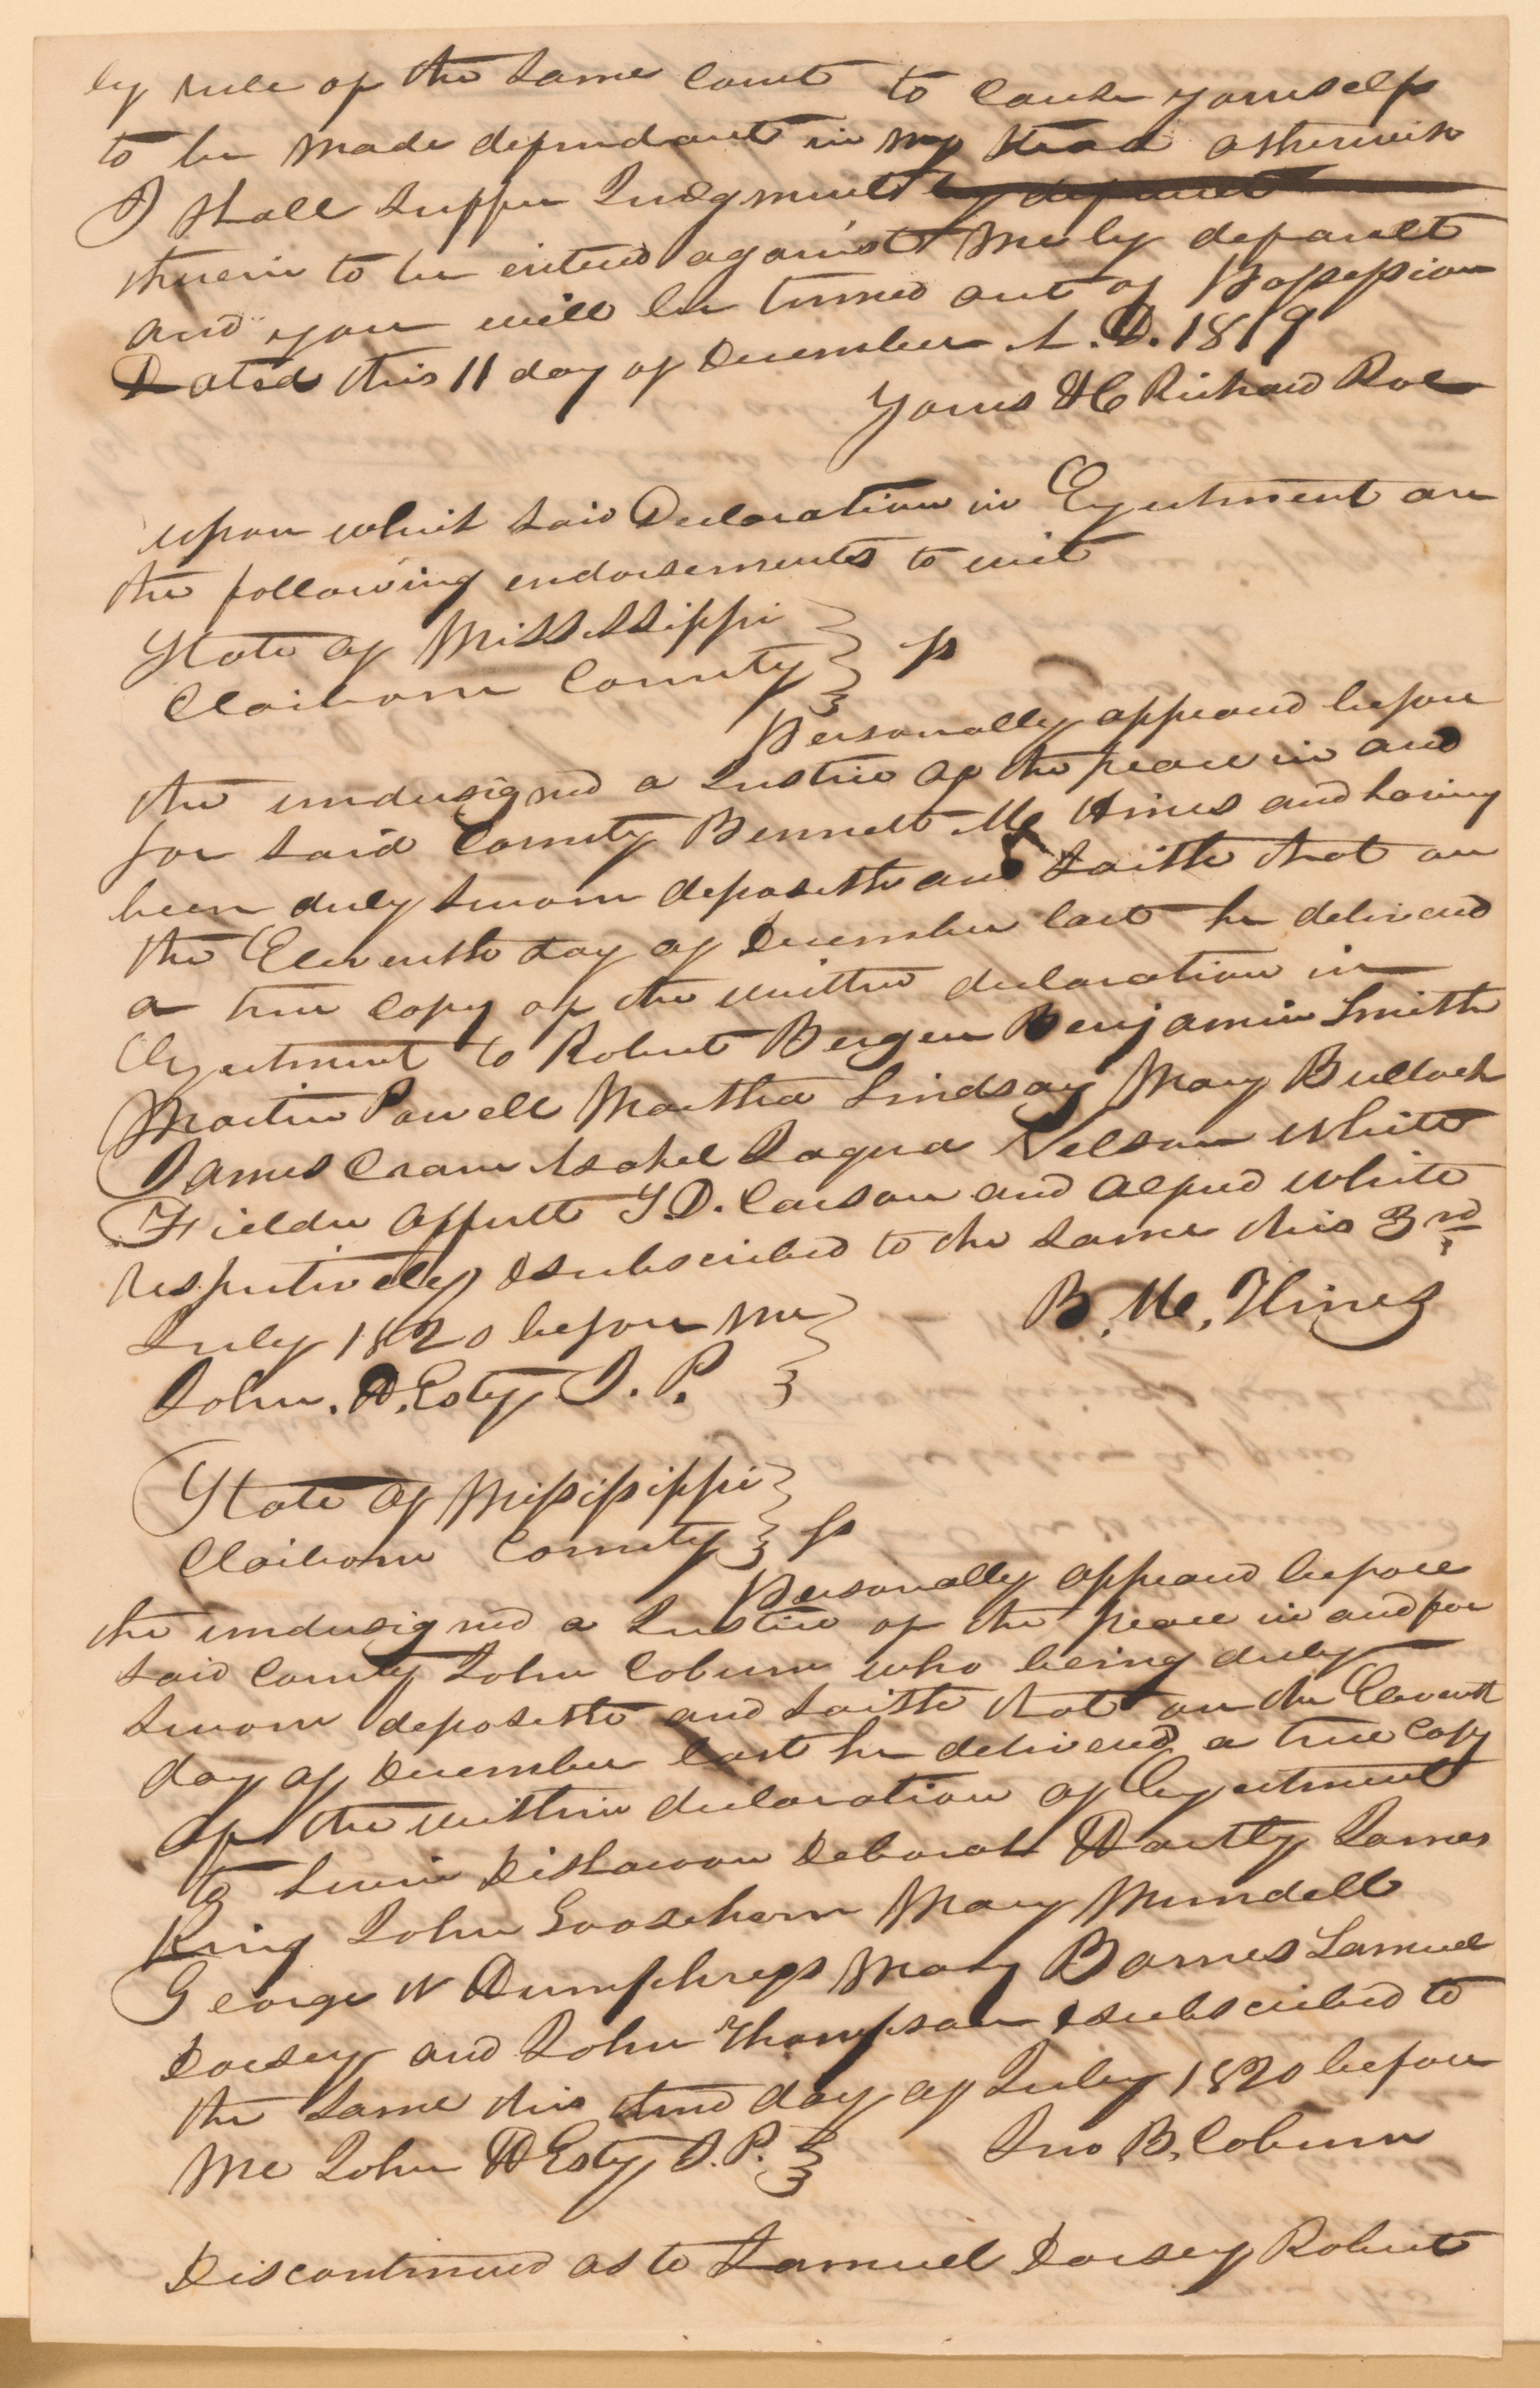 by rule of the same court to cause yourself
to be made defendant in my stead otherwise
I shall suffer Judgment by default
therein to be entered against me by default
and you will be turned out of Possession
Dated this 11 day of December A. D. 1819
Yours &C Richard Roe
upon which said Declaration in Ejectment are
the following endorsements to wit
State of Mississippi
Claiborne County ss
Personally appeared before
the undersigned a Justice of the peace in and
for said County Bennett M Hines and having
been duly sworn deposeth and saith that on
the Eleventh day of December last he delivered
a true Copy of the within declaration in
Ejectment to Robert Bergen Benjamin Smith
Martin Powell Martha Lindsay Mary Bullock
James Crane Nelson White
Fielder Offutt T.D. Carson and Alfred White
respectively & subscribed to the same this 3rd
July 1820 before me
B. M. Hines
John. H. Esty J. P.
State of Mississippi
Claiborne County ss
Personally appeared before
the undersigned a Justice of the peace in and for
said County John Coburn who being duly
sworn deposeth and saith that on the Eleventh
day of December last he delivered a true Copy
of the within declaration of Ejectment
to Deborah Hartly James
King John Goosehorn Mary Mundell
George W Humphreys Mary Barnes Samuel
Dorsey and John Thompson & subscribed to
the same this day of July 1820 before
me John H Esty J. P.
Jno B. Coburn
Discontinued as to Samuel Dorsey Robert